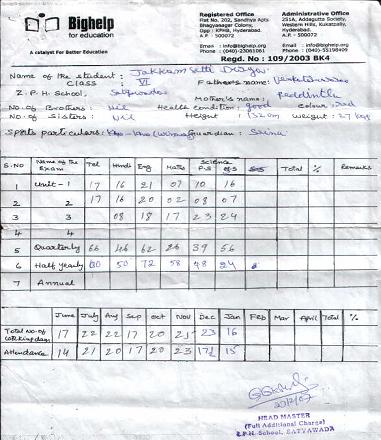 Bighelp
for education
A catalyst For Better Education
Registered Office
Flat No. 202, Sandhya Apts
Bhagyanagar Colony,
Opp : KPHB, Hyderabad.
A.P. - 500072
Email : info@bighelp.org
Phone : (040)-23063061
Administrative Office
251A, Addagutta Society,
Western Hills, Kukatpally,
Hyderabad.
A.P. - 500072
Email : info@bighelp.org
Phone : (040)-55198409
Regd. No : 109/2003 BK4
Name of the student : Jakkam Setti
CLASS : VI Father's name:
Z.P.H. School, Mother's name:
No. of Brothers: Nil Health condition: good colour:
No. of Sisters: Nil Height: 132 cm weight: 27 kgs
Sports particulars: Guardian:
S.NO Name of the Exam Tel Hindi Eng Maths Science P.S N.S S.S Total % Remarks
1 Unit - 1 17 16 21 07 10 16
2 2 17 16 20 02 08 07
3 3 08 18 17 23 24
4 4
5 Quarterly 66 46 62 26 39 56
6 Half yearly 60 50 72 58 48 24
7 Annual
June July Aug Sep Oct Nov Dec Jan Feb Mar April Total %
Total No. of working days 17 22 22 17 20 25 23 16
Attendance 14 21 20 17 20 23 17½ 15
HEAD MASTER
(Full Additional Charge)
Z.P.H. School, SATYAWADA